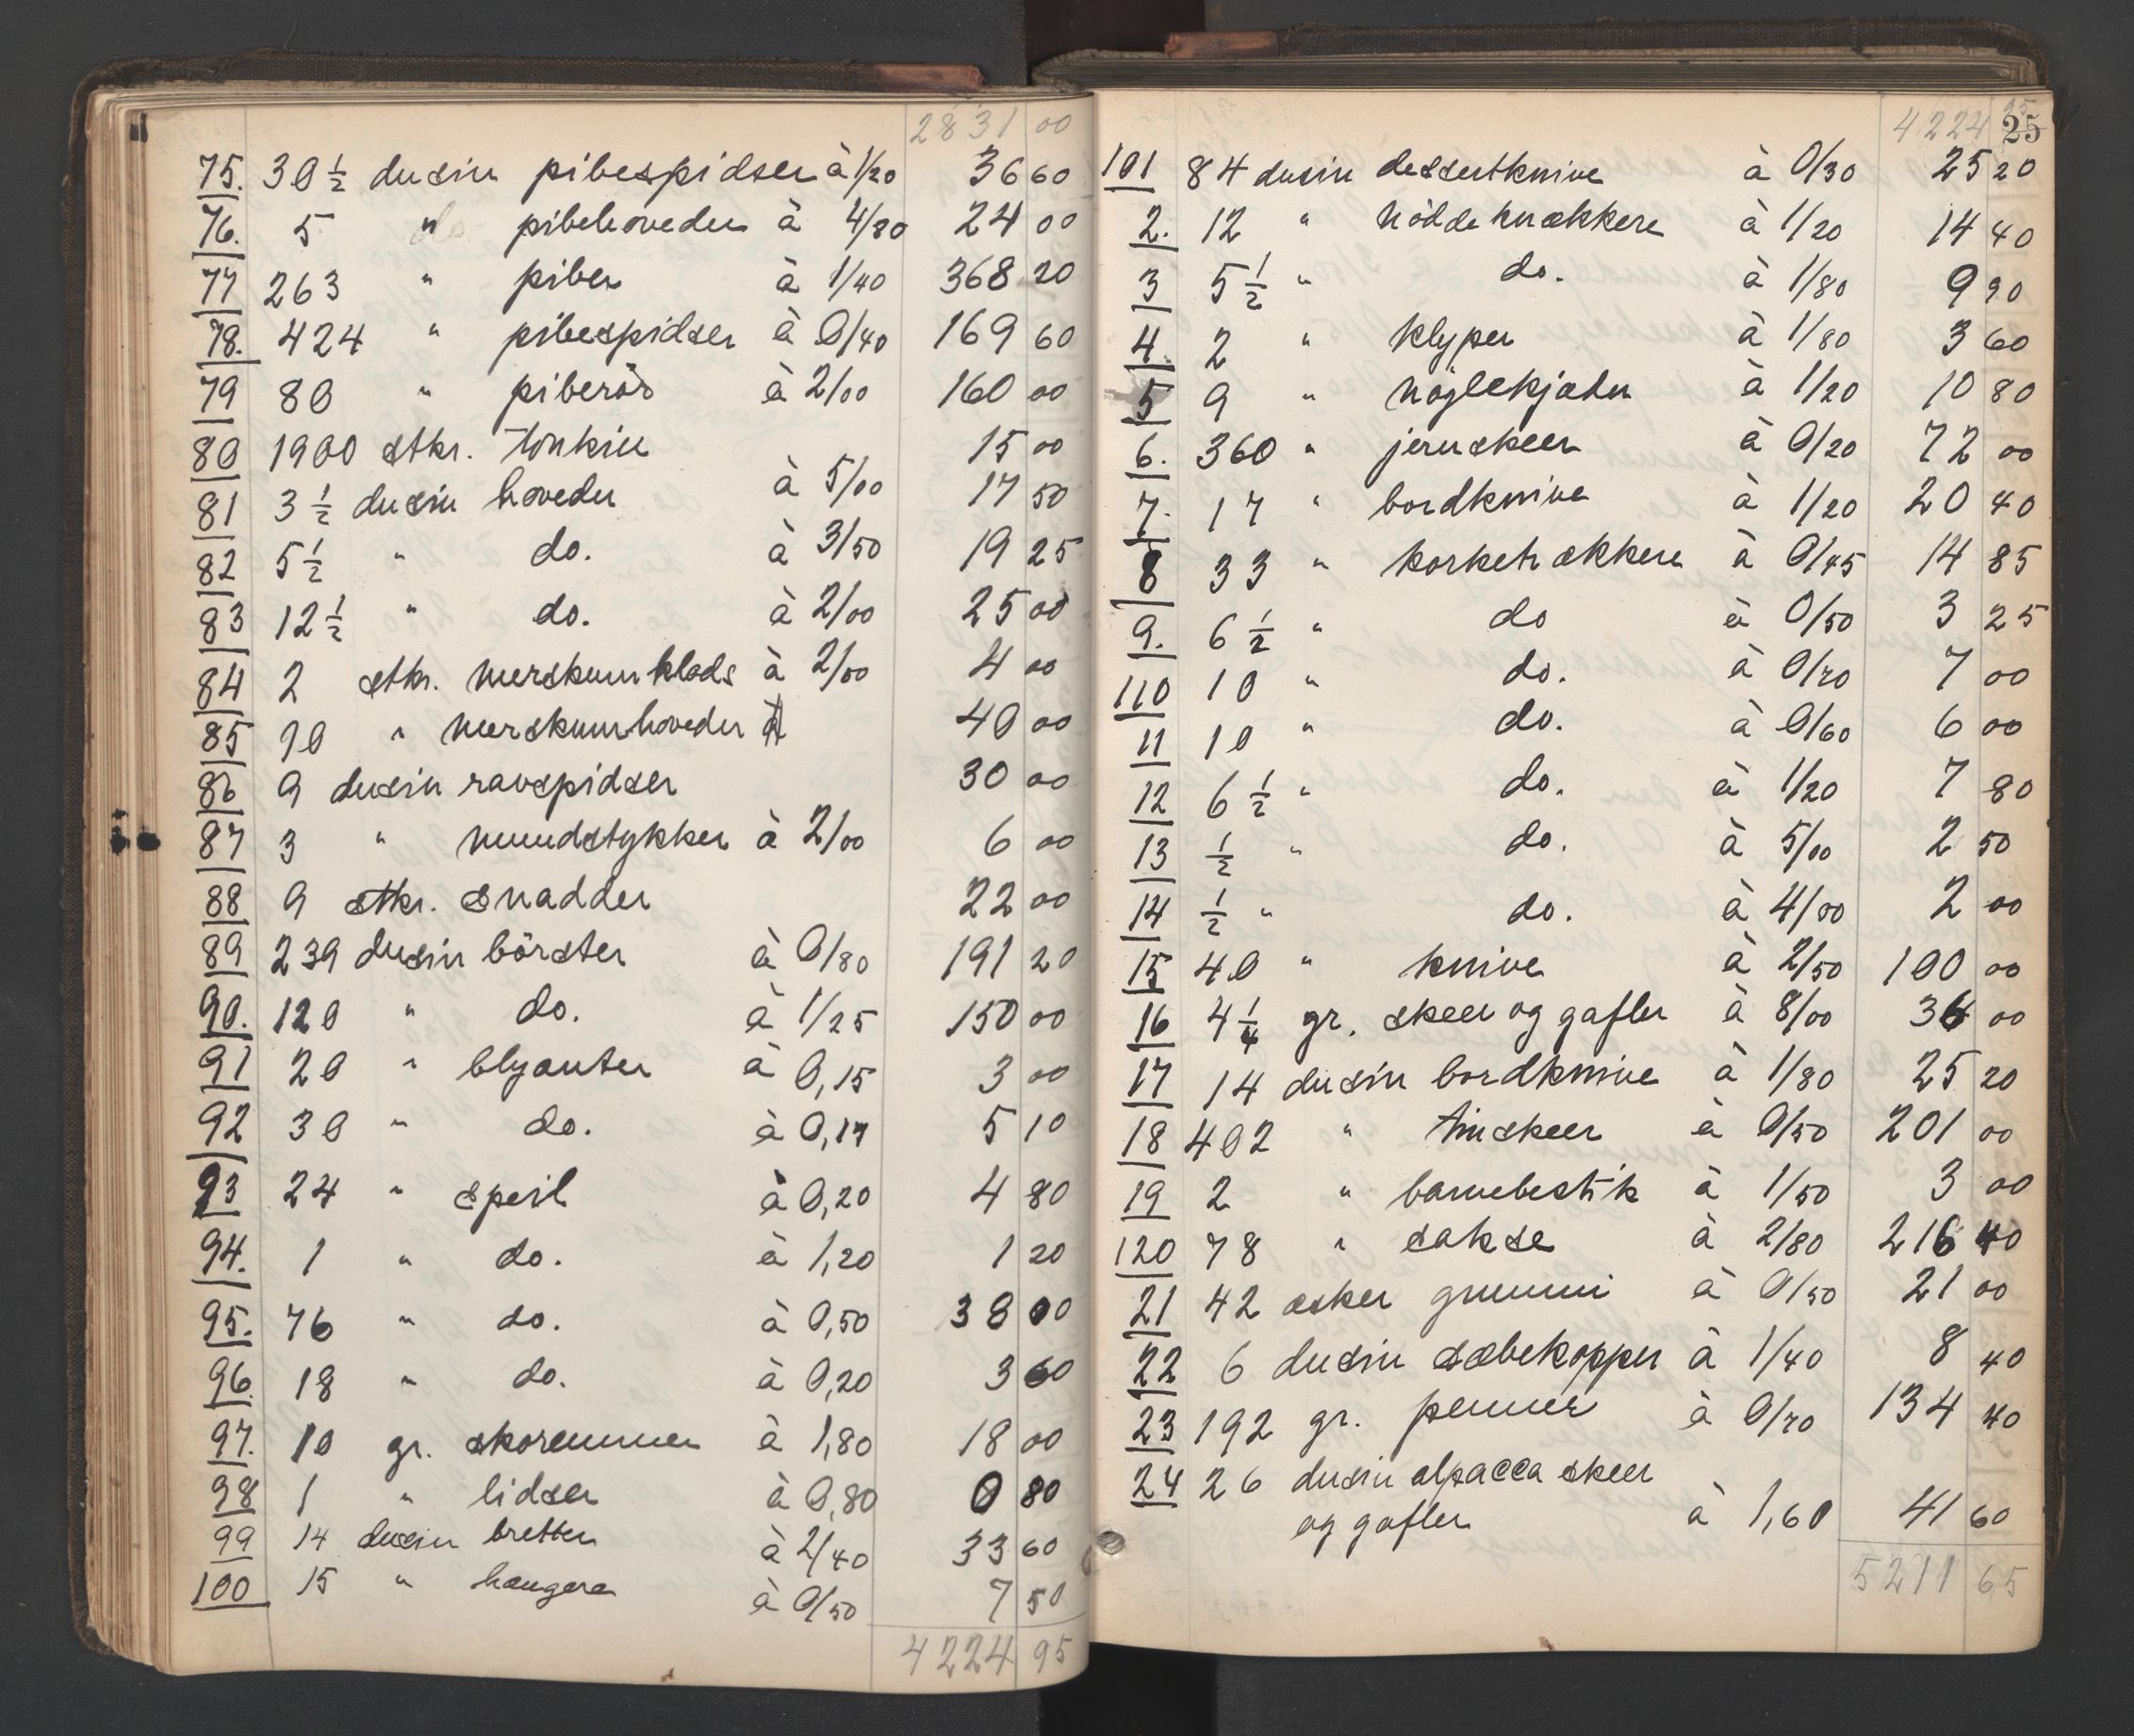 2831 00
75. 30 1/2 dusin pibespidser à 1/20 36 60
76. 5 " pibehoveder à 4/80 24 00
77 263 " piber à 1/40 368 20
78. 424 " pibespidser à 0/40 169 60
79 80 " piberör à 2/00 160 00
80 1900 stkr. Tonkin 15 00
81 3 1/2 dusin hoveder à 5/00 17 50
82 5 1/2 " do. à 3/50 19 25
83 12 1/2 " do. à 2/00 25 00
84 2 stkr. merskumklods à 2/00 4 00
85 10 " merskumhoveder 40 00
86 9 dusin ravspidser 30 00
87 3 " mundstykker à 2/00 6 00
88 9 stkr. snadder 22 00
89 239 dusin börster à 0/80 191 20
90. 120 " do. à 1/25 150 00
91 20 " blyanter à 0,15 3 00
92 30 " do. à 0,17 5 10
93 24 " speil à 0,20 4 80
94. 1 " do. à 1,20 1 20
95. 76 " do. à 0,50 38 00
96. 18 " do. à 0,20 3 60
97. 10 gr. skoremmer à 1,80 18 00
98 1 " lidser à 0,80 0 80
99 14 dusin bretter à 2/40 33 60
100 15 " hængere à 0/50 7 50
4224 95
4224 25
101 84 dusin dessertknive à 0/30 25 20
2. 12 " nöddeknækkere à 1/20 14 40
3 5 1/2 " do. à 1/80 9 90
4. 2 " klyper à 1/80 3 60
5 9 " nöglekjæder à 1/20 10 80
6. 360 " jernskeer à 0/20 72 00
7. 17 " bordknive à 1/20 20 40
8 33 " korketrækkere à 0/45 14 85
9. 6 1/2 " do à 0/50 3 25
110 10 " do. à 0/70 7 00
11 10 " do. à 0/60 6 00
12 6 1/2 " do. à 1/20 7 80
13 1/2 " do. à 5/00 2 50
14 1/2 " do. à 4/00 2 00
15 40 " knive à 2/50 100 00
16 4 1/4 gr. skeer og gafler à 8/00 36 00
17 14 dusin bordknive à 1/80 25 20
18 402 " tinskeer à 0/50 201 00
19 2 " barnebestik à 1/50 3 00
120 78 " sakse à 2/80 216 40
21 42 æsker gummi à 0/50 21 00
22 6 dusin sæbekopper à 1/40 8 40
23 192 gr. penner à 0/70 134 40
24 26 dusin alpacca skeer
og gafler à 1,60 41 60
5211 65